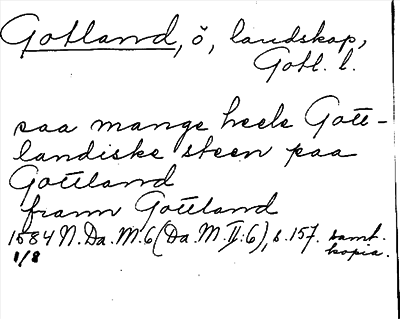 Gotland, ö, landskap,
Gotl. l.
saa mange heele Gott-
landiske steen paa
Gottland
framm Gottland
1584 N. Da. M. 6 (Da. M. II: 6), s. 157. samt.
1/8 kopia.